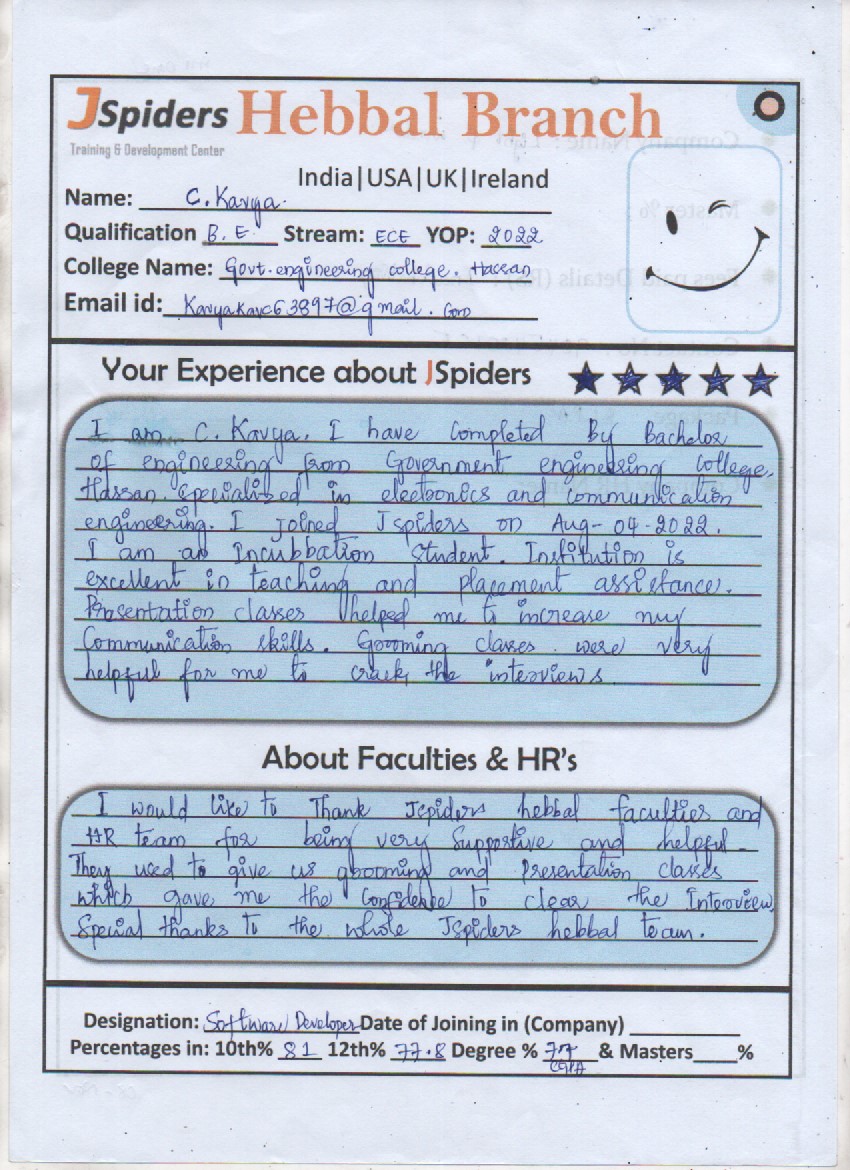 JSpiders Hebbal Branch
Training & Development Center
India|USA|UK|Ireland
Name: C. Kavya.
Qualification B. E. Stream: ECE YOP: 2022
College Name: Govt. engineering college. Hassan
Email id: @gmail. com
Your Experience about JSpiders
I am C. Kavya. I have Completed By Bachelor
of engineering from Government engineering college,
Hassan. Specialized in electronics and communication
engineering. I joined Jspiders on Aug-04-2022.
I am an Incubbation Student. Institution is
excellent in teaching and placement assistance.
Presentation classes helped me to increase my
Communication skills. Grooming classes were very
helpful for me to crack the interviews
About Faculties & HR's
I would like to Thank Jspiders hebbal faculties and
HR team for being very Supportive and helpful.
They used to give us grooming and Presentation classes
which gave me the Confidence to clear the Interview,
Special thanks to the whole Jspiders hebbal team.
Designation: Software Developer Date of Joining in (Company)
Percentages in: 10th% 81 12th% 77.8 Degree % & Masters____%
CGPA